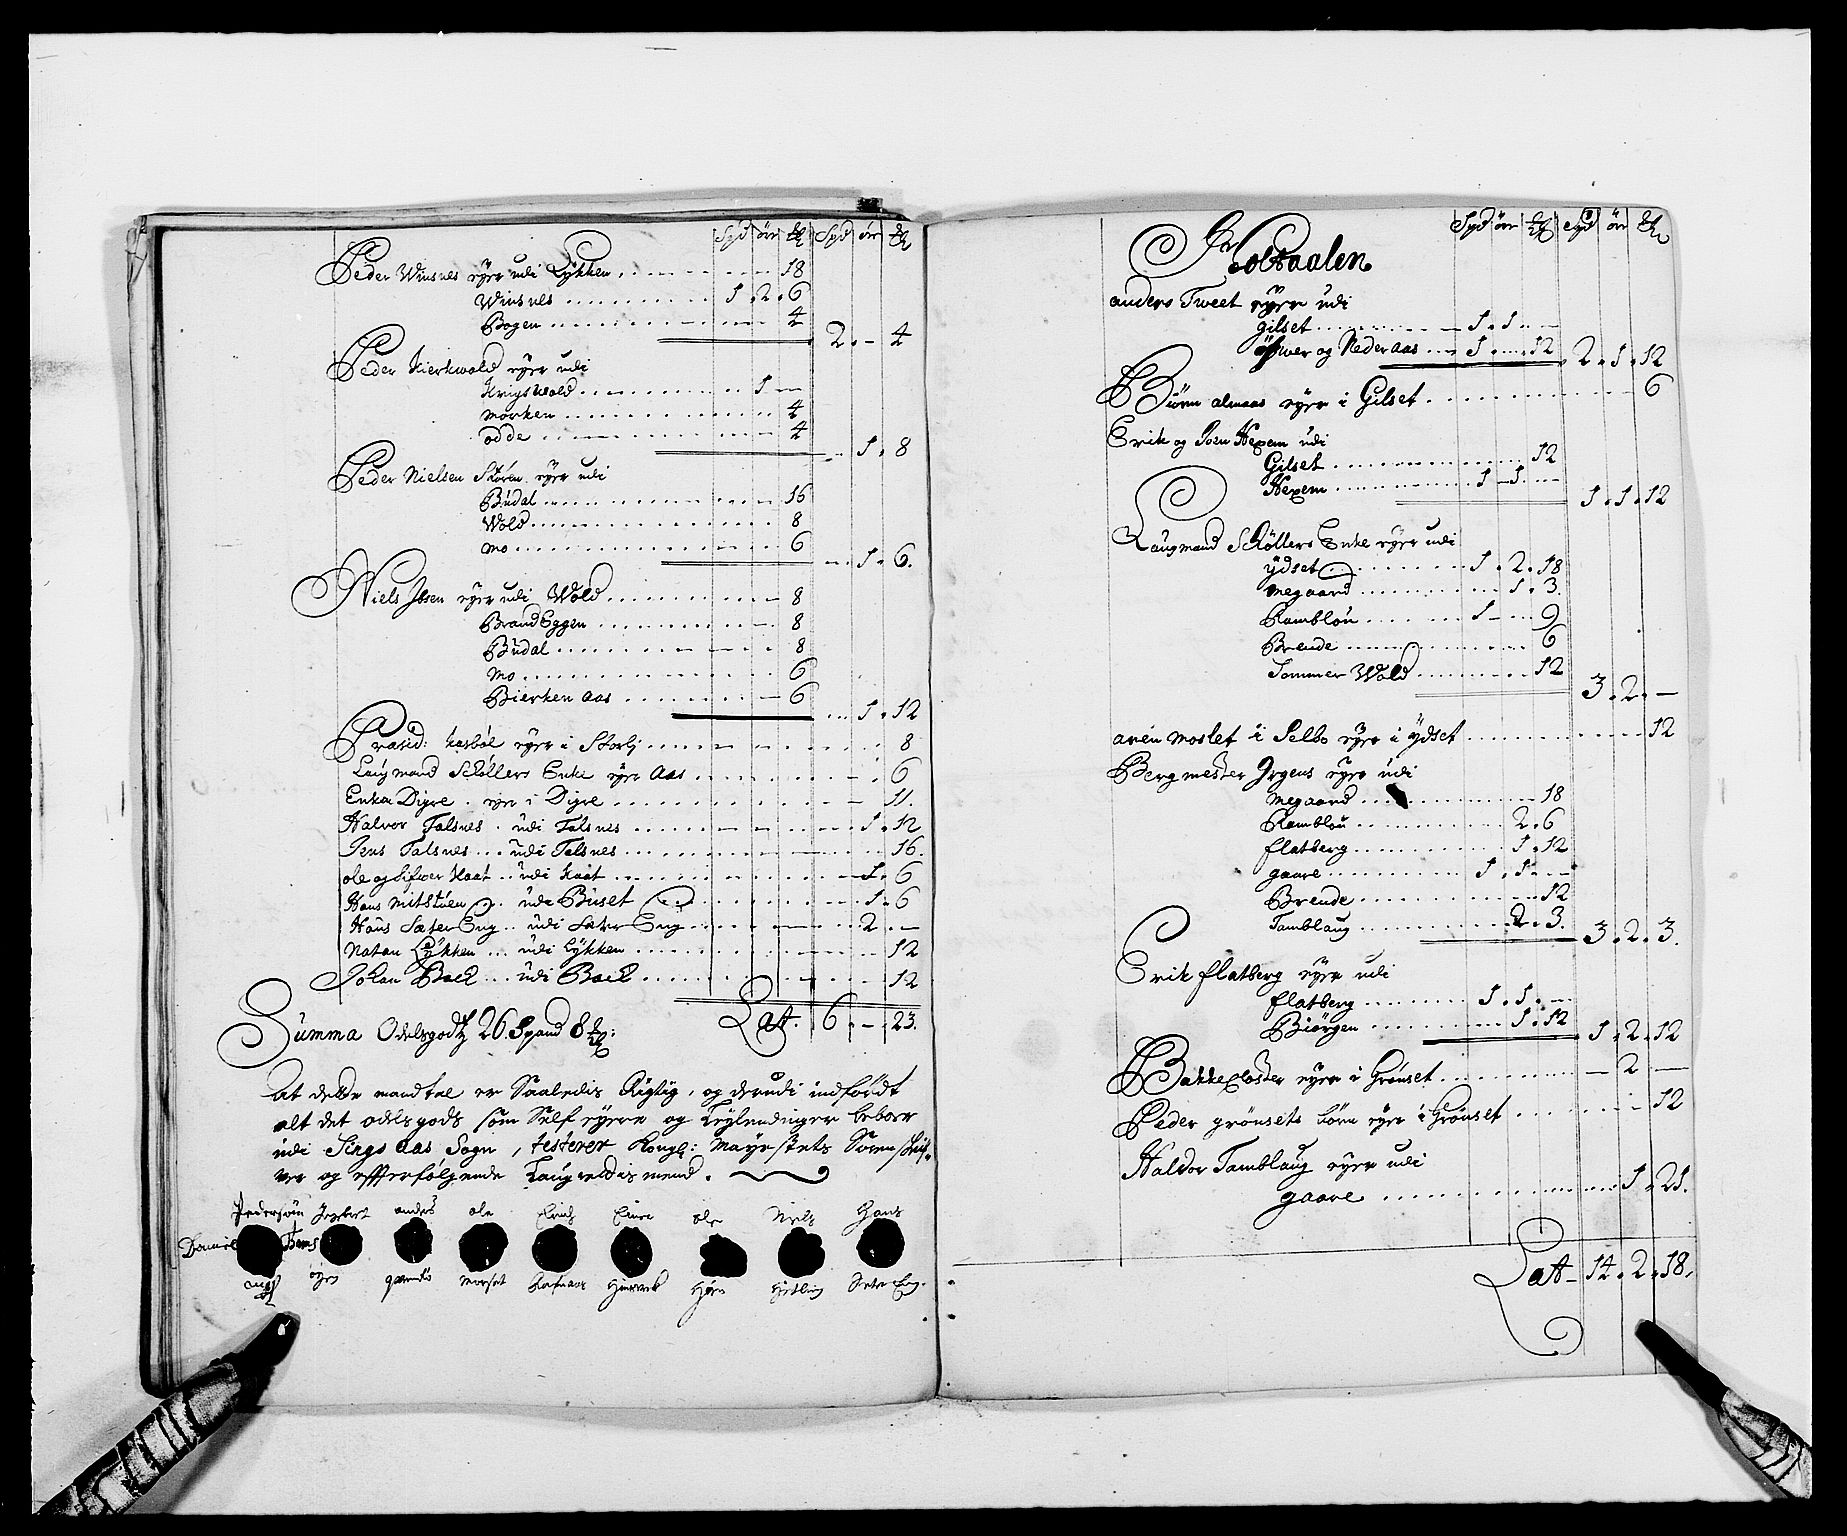 Spd ör mk Spd ör mk
Peder Winsnes eyer udi Lykken 18
Winsnes 1 . 2 . 6
Bogen 4
2 . – 4
Peder Kierkwold eyer udi
Krigswold 1 –
morken 4
odde 4
1 . 8
Peder Nielsen Stören eyer udi
Büdal 16
Wold 8
mo 6
1 . 6.
Niels Ibsen eyer udi Wold 8
Brand Eggen 8
Büdal 8
mo 6
Bierken aas 6
1 . 12
Præsid: Kasböl eyer i Storlj 8
Laugmand Schöllers Enke eyer Aas 6
Enka Digre . eyer i Digre 11.
Halvor Talsnes . udi Talsnes 1 . 12
Jens Talsnes . . udi Talsnes 16.
ole og Sifver Kaat . . udi Kaat 1 . 6
Hans mitstuen . . udi Buset 1 . 6
Hans Sæter Eng . . udi Sæter Eng 2 . –
Natan Lykken . . udi Lykken 12
Johan Back . . udi Back 12
Lat. 6 . – . 23.
Summa Odelsgodtz 26 Spand 8
At dette mandtal er Saaledis Rigtig, og derudi indfördt
alt det odelsgods som Self eyere og Leylendinger beboer
udi Sings Aas Sogn, testerer Kongl: Mayestets Sorenschrif-
ver og effterfölgende Laugrettis mend.
Pedersön Ingebret anders ole Erich Einer ole Niels Hans
Daniel
öyen morset Sæter Eng.
Spd ör mk Spd ör mk
For Holtaalen
anders Tweet eyer udi
gilset 1 . 1 . –
öfwer og Neder aas 1 . – . 12 2 . 1 . 12
Biörn almaas eyer i Gilset 6
Erik og Joen Hexem udi
Gilset 12
Hexem 1 – 1 . –
1 . 1 . 12
Laugmand Schöllers Enke eyer udi
ydset 1 . 2 . 18
megaard 1 . 3.
Ramblou 1 – 9
Brende 6
Sommer Wold 12
3 . 2 . –
aren moslet i Selbo eyer i ydset 12
Bergmester Jrgens eyer udi
megaard 18
Ramblou 2 . 6
flatberg 1 . 12
gaare 1 . 1 . –
Brende 12
Tamblaug 2 . 3.
3 . 2 . 3.
Erik flatberg eyer udi
flatberg 1 . 1 . –
Biörgen 1 . 12
1 . 2 . 12
Bakke Closter eyer i Grönset – 2 –
Peder grönsets börn eyer i Grönset 12
Haldor Tamblaug eyer udi
gaare 1 . 21.
Lat – 14 . 2 . 18.